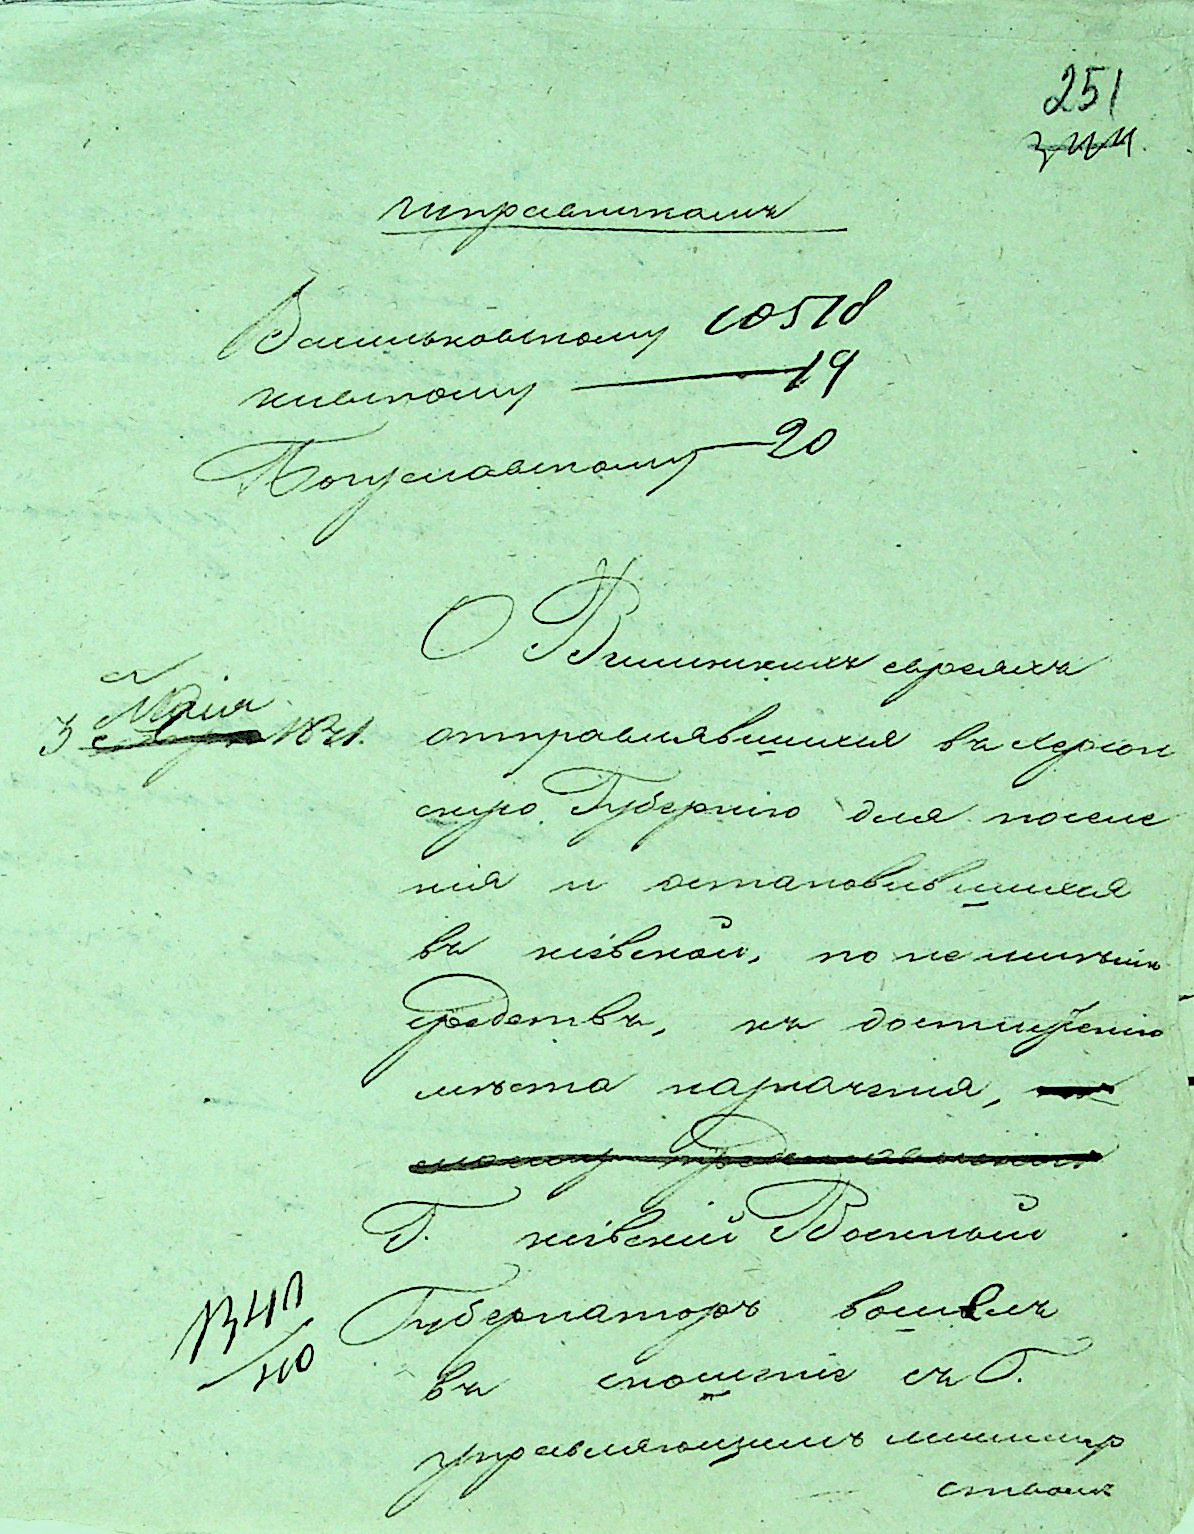 251
Исправникамъ
Васильковскому 10518
Кіевскому 19
Богуславскому 20
О Виленскихъ евреяхъ
3 Маія 1841.
отправлявшихся въ Херсон
скую Губернію для поселе
нія и остановившихся
въ Кіевской, по неимѣнію
средствъ, къ достиженію
мѣста назначенія,
Г. Кіевскій Военный
Губернаторъ вошелъ
въ сношеніе съ Г.
управляющимъ министер
ствомъ